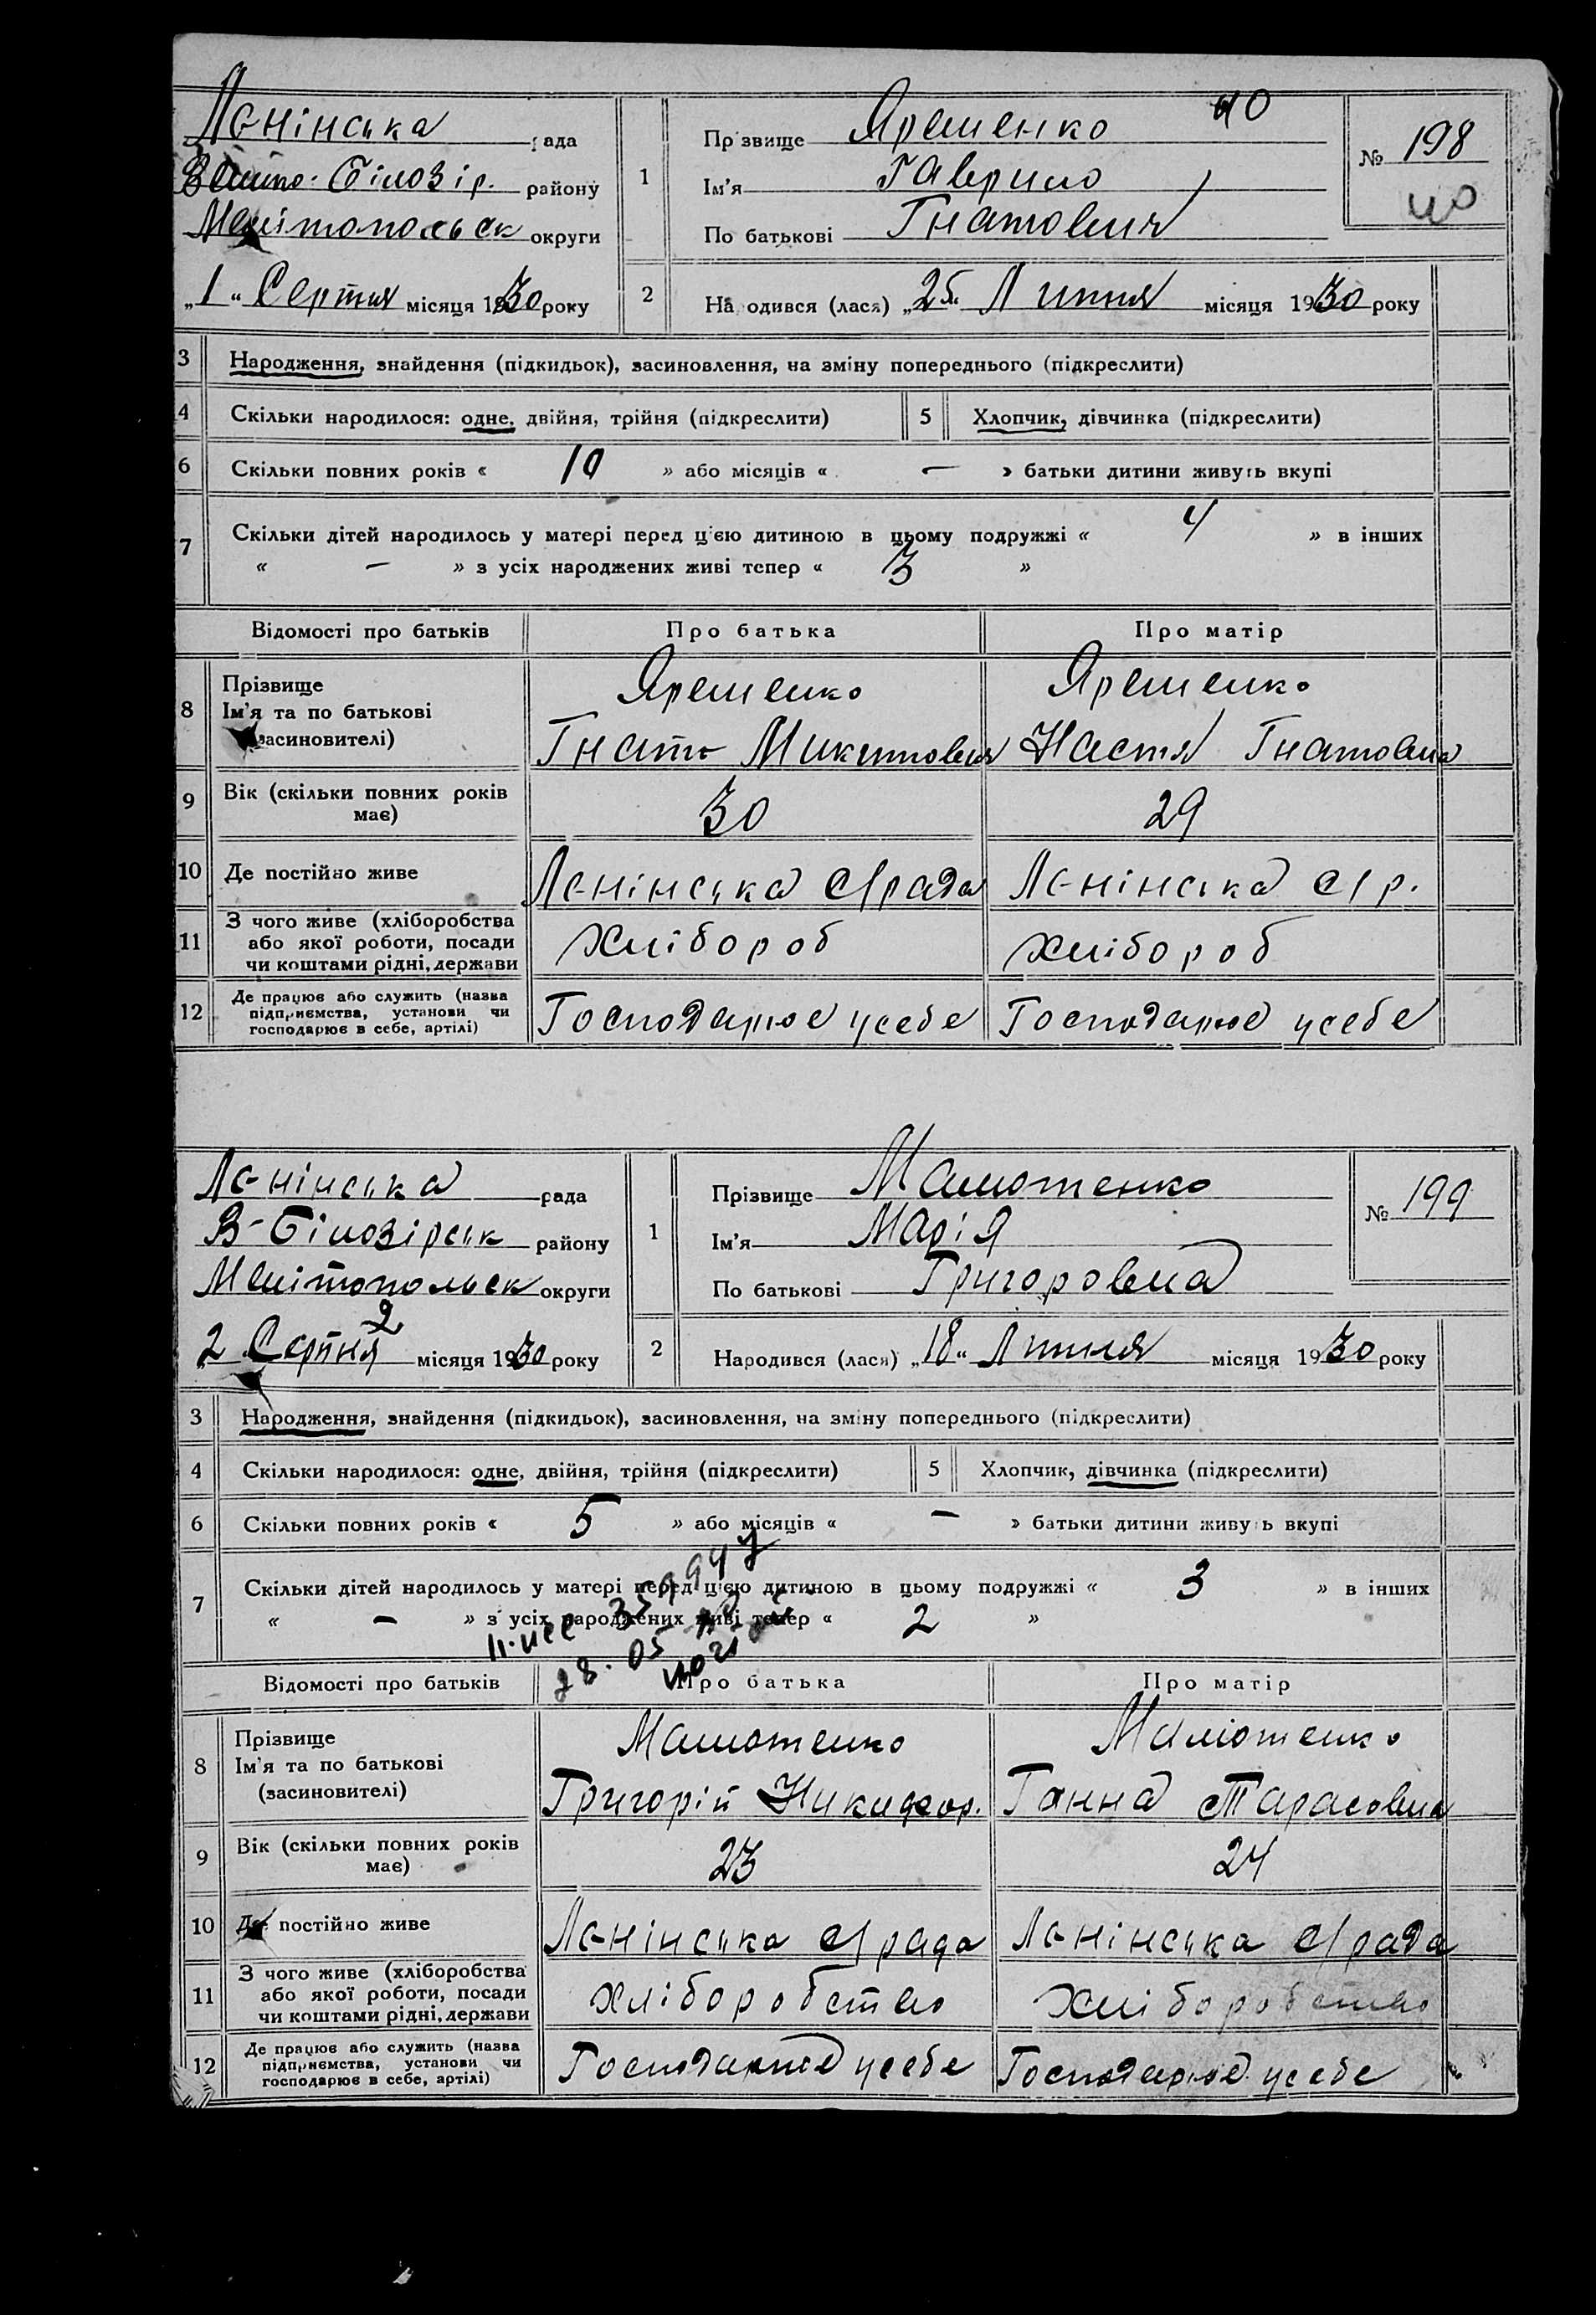 Ленінська рада
Велико-Білозір. району
Мелітопольськ округи
„1“ Серпня місяця 1930 року
1
Прізвище Яременко 40
Ім'я Гаврило
По батькові Гнатович
№ 198
40
2
Народився (лася) „25“ Липня місяця 1930 року
3 Народження, знайдення (підкидьок), засиновлення, на зміну попереднього (підкреслити)
4 Скільки народилося: одне, двійня, трійня (підкреслити) 5 Хлопчик, дівчинка (підкреслити)
6 Скільки повних років « 10 » або місяців « — » батьки дитини живуть вкупі
7 Скільки дітей народилось у матері перед ц'єю дитиною в цьому подружжі « 4 » в інших
« — » з усіх народжених живі тепер « 3 »
Відомості про батьків Про батька Про матір
8 Прізвище Яременко Яременко
Ім'я та по батькові
(засиновителі) Гнат Микитович Настя Гнатовна
9 Вік (скільки повних років має) 30 29
10 Де постійно живе Ленінська с/рада Ленінська с/р.
11 З чого живе (хліборобства
або якої роботи, посади хлібороб хлібороб
чи коштами рідні, держави
12 Де працює або служить (назва
підприємства, установи чи
господарює в себе, артілі) Господарює усебе Господарює усебе
Ленінська рада
В-Білозірськ району
Мелітопольськ округи
2 Серпня місяця 1930 року
1
Прізвище Малютенко
Ім'я Марія
По батькові Григоровна
№ 199
2
Народився (лася) „18“ Липня місяця 1930 року
3 Народження, знайдення (підкидьок), засиновлення, на зміну попереднього (підкреслити)
4 Скільки народилося: одне, двійня, трійня (підкреслити) 5 Хлопчик, дівчинка (підкреслити)
6 Скільки повних років « 5 » або місяців « — » батьки дитини живуть вкупі
7 Скільки дітей народилось у матері перед ц'єю дитиною в цьому подружжі « 3 » в інших
« — » з усіх народжених живі тепер « 2 »
Відомості про батьків Про батька Про матір
8 Прізвище Малютенко Малютенко
Ім'я та по батькові
(засиновителі) Григорій Никифор. Ганна Тарасовна
9 Вік (скільки повних років має) 23 24
10 Де постійно живе Ленінська с/рада Ленінська с/рада
11 З чого живе (хліборобства
або якої роботи, посади хліборобство хліборобство
чи коштами рідні, держави
12 Де працює або служить (назва
підприємства, установи чи
господарює в себе, артілі) Господарює усебе Господарює усебе